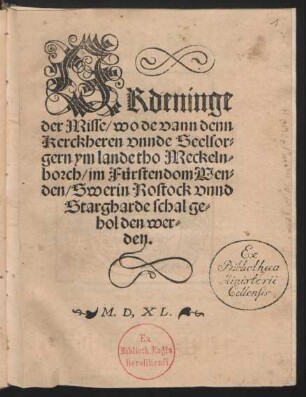 1
ORdeninge
der Misse/ wo de vann denn
Kerckheren vnnde Seelsor-
gern ym lande tho Meckeln-
borch/ im Fürstendom Wen-
den/ Swerin Rostock vnnd
Stargharde schal ge-
holden wer-
den.
M. D. XL.
Ex
Bibliotheca
Ministerii
Cellensis
Ex
Biblioth. Regia
Berolinensi.